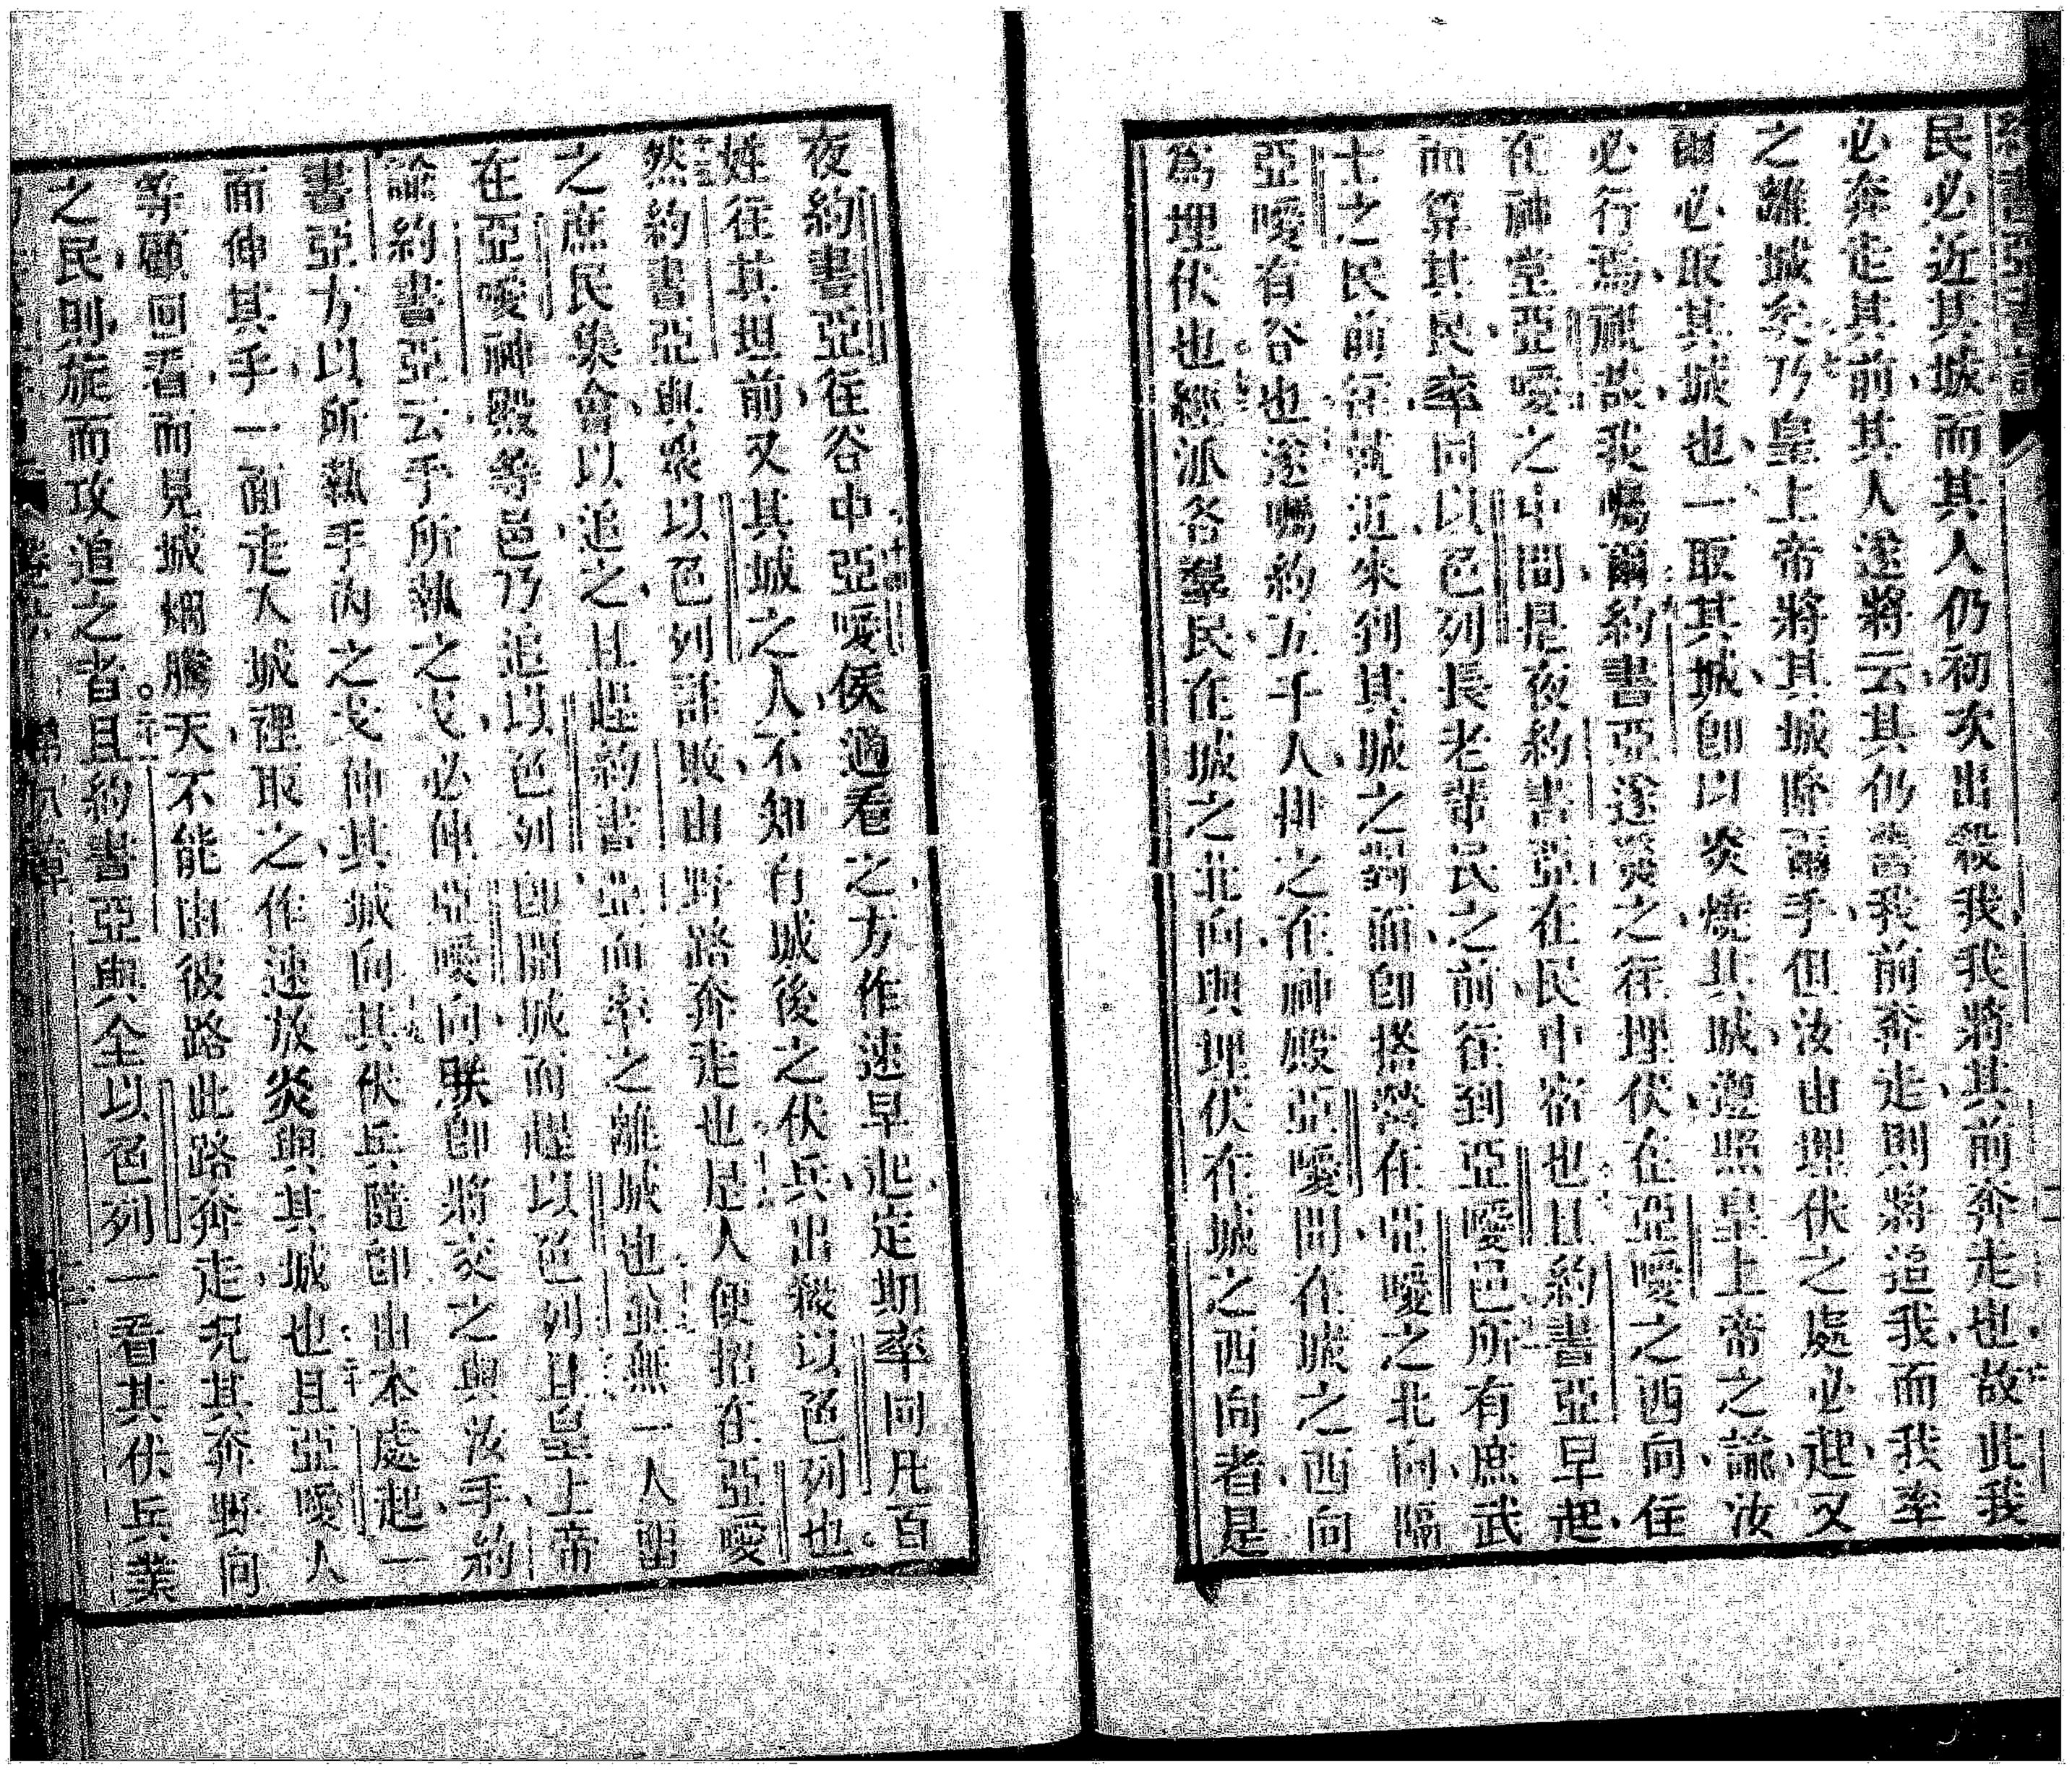 約書亞書記
民必近其城而其人仍初次出殺我我將其前奔走也故此我
必奔走其前其人遂將云其仍當我前奔走則將追我而我率
之離城矣乃皇上帝將其城降爾手但汝由埋伏之處必起又
爾必取其城也一取其城卽以炎燒其城遵照皇上帝之諭汝
必行焉視哉我囑爾約書亞遂發之往埋伏在亞噯之西向住
在神堂亞噯之中間是夜約書亞在民中宿也且約書亞早起
而算其民率同以色列長老輩民之前往到亞噯邑所有庶武
士之民前往就近來到其城之對面卽搭營在亞噯之北向隔
亞噯有谷也遂囑約五千人排之在神殿亞噯間在城之西向
爲埋伏也經派各羣民在城之北向與埋伏在城之西向者是
夜約書亞往谷中亞噯侯適看之方作速早起定期率同凡百
姓往其坦前又其城之人不知有城後之伏兵出殺以色列也
然約書亞與衆以色列詐敗由野路奔走也是人便招在亞噯
之庶民集會以追之且趕約書亞而率之離城也並無一人留
在亞噯神殿等邑乃追以色列卽開城而趕以色列且皇上帝
諭約書亞云手所執之戈必伸亞噯向朕卽將交之與汝手約
書亞方以所執手內之戈伸其城向其伏兵隨卽出本處起一
面伸其手一面走入城裡取之作速放炎與其城也且亞噯人
等顧回看而見城烟騰天不能由彼路此路奔走況其奔野向
之民則旋而攻追之者且約書亞與全以色列一看其伏兵業